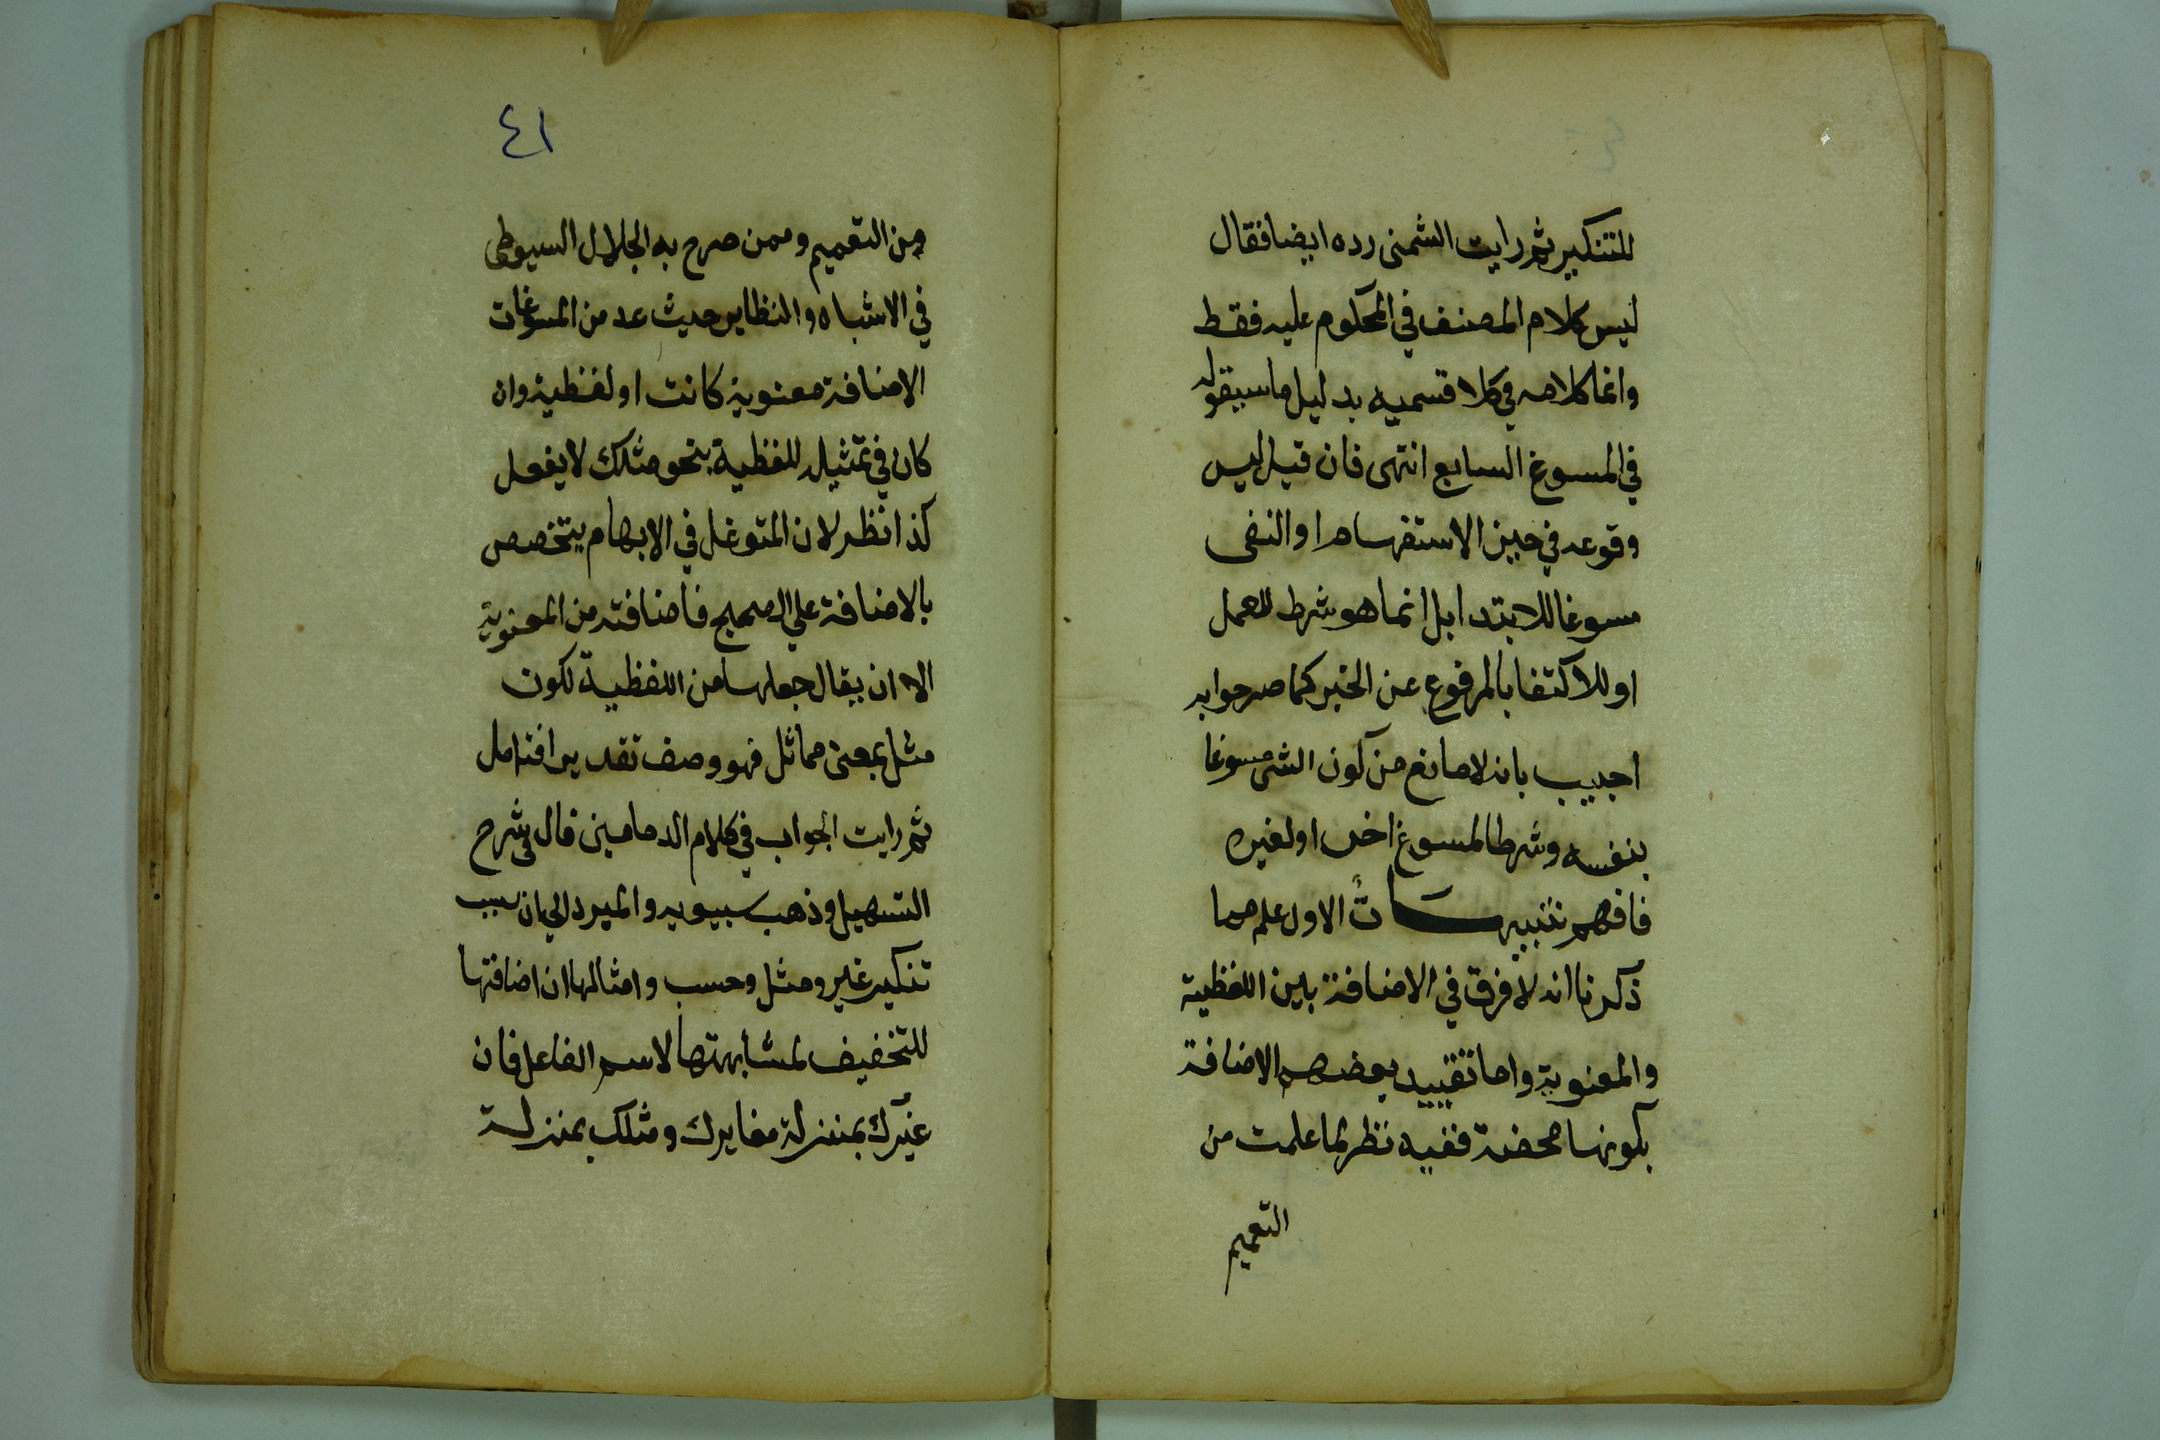 للتنكير ثم رايت الشمنى رده ايضا فقال
ليس كلام المصنف في المحكوم عليه فقط
وانما كلامه في كلا قسميه بدليل ما سيقوله
في المسوغ السابع انتهى فان قيل ليس
وقوعه في حيز الاستفهام او النفى
مسوغا للابتدا بل انما هو شرط للعمل
او للاكتفا بالمرفوع عن الخبر كما صرحوا به
اجيب بانه لا مانع من كون الشى مسوغا
بنفسه وشرطا لمسوغ اخر او لغيره
فافهم تنبيهات الاول علم مما
ذكرنا انه لا فرق في الاضافة بين اللفظية
والمعنوية واما تقييد بعضهم الاضافة
بكونها محضة ففيه نظر لما علمت من
التعميم
٤١
من التعميم وممن صرح به الجلال السيوطى
في الاشباه والنظاير حيث عد من المسوغات
الاضافة معنوية كانت او لفظية وان
كان في تمثيله للفظية بنحو مثلك لا يفعل
كذا نظر لان المتوغل في الابهام يتخصص
بالاضافة علي الصحيح فاضافته من المعنوية
الا ان يقال جعلها من اللفظية لكون
مثل بمعنى مماثل فهو وصف تقديرا فتامل
ثم رايت الجواب في كلام الدمامينى قال في شرح
التسهيل وذهب سيبويه والمبرد الي ان سبب
تنكير غير ومثل وحسب وامثالها ان اضافتها
للتخفيف لمشابهتها لاسم الفاعل فان
غيرك بمنزلة مغايرك ومثلك بمنزلة